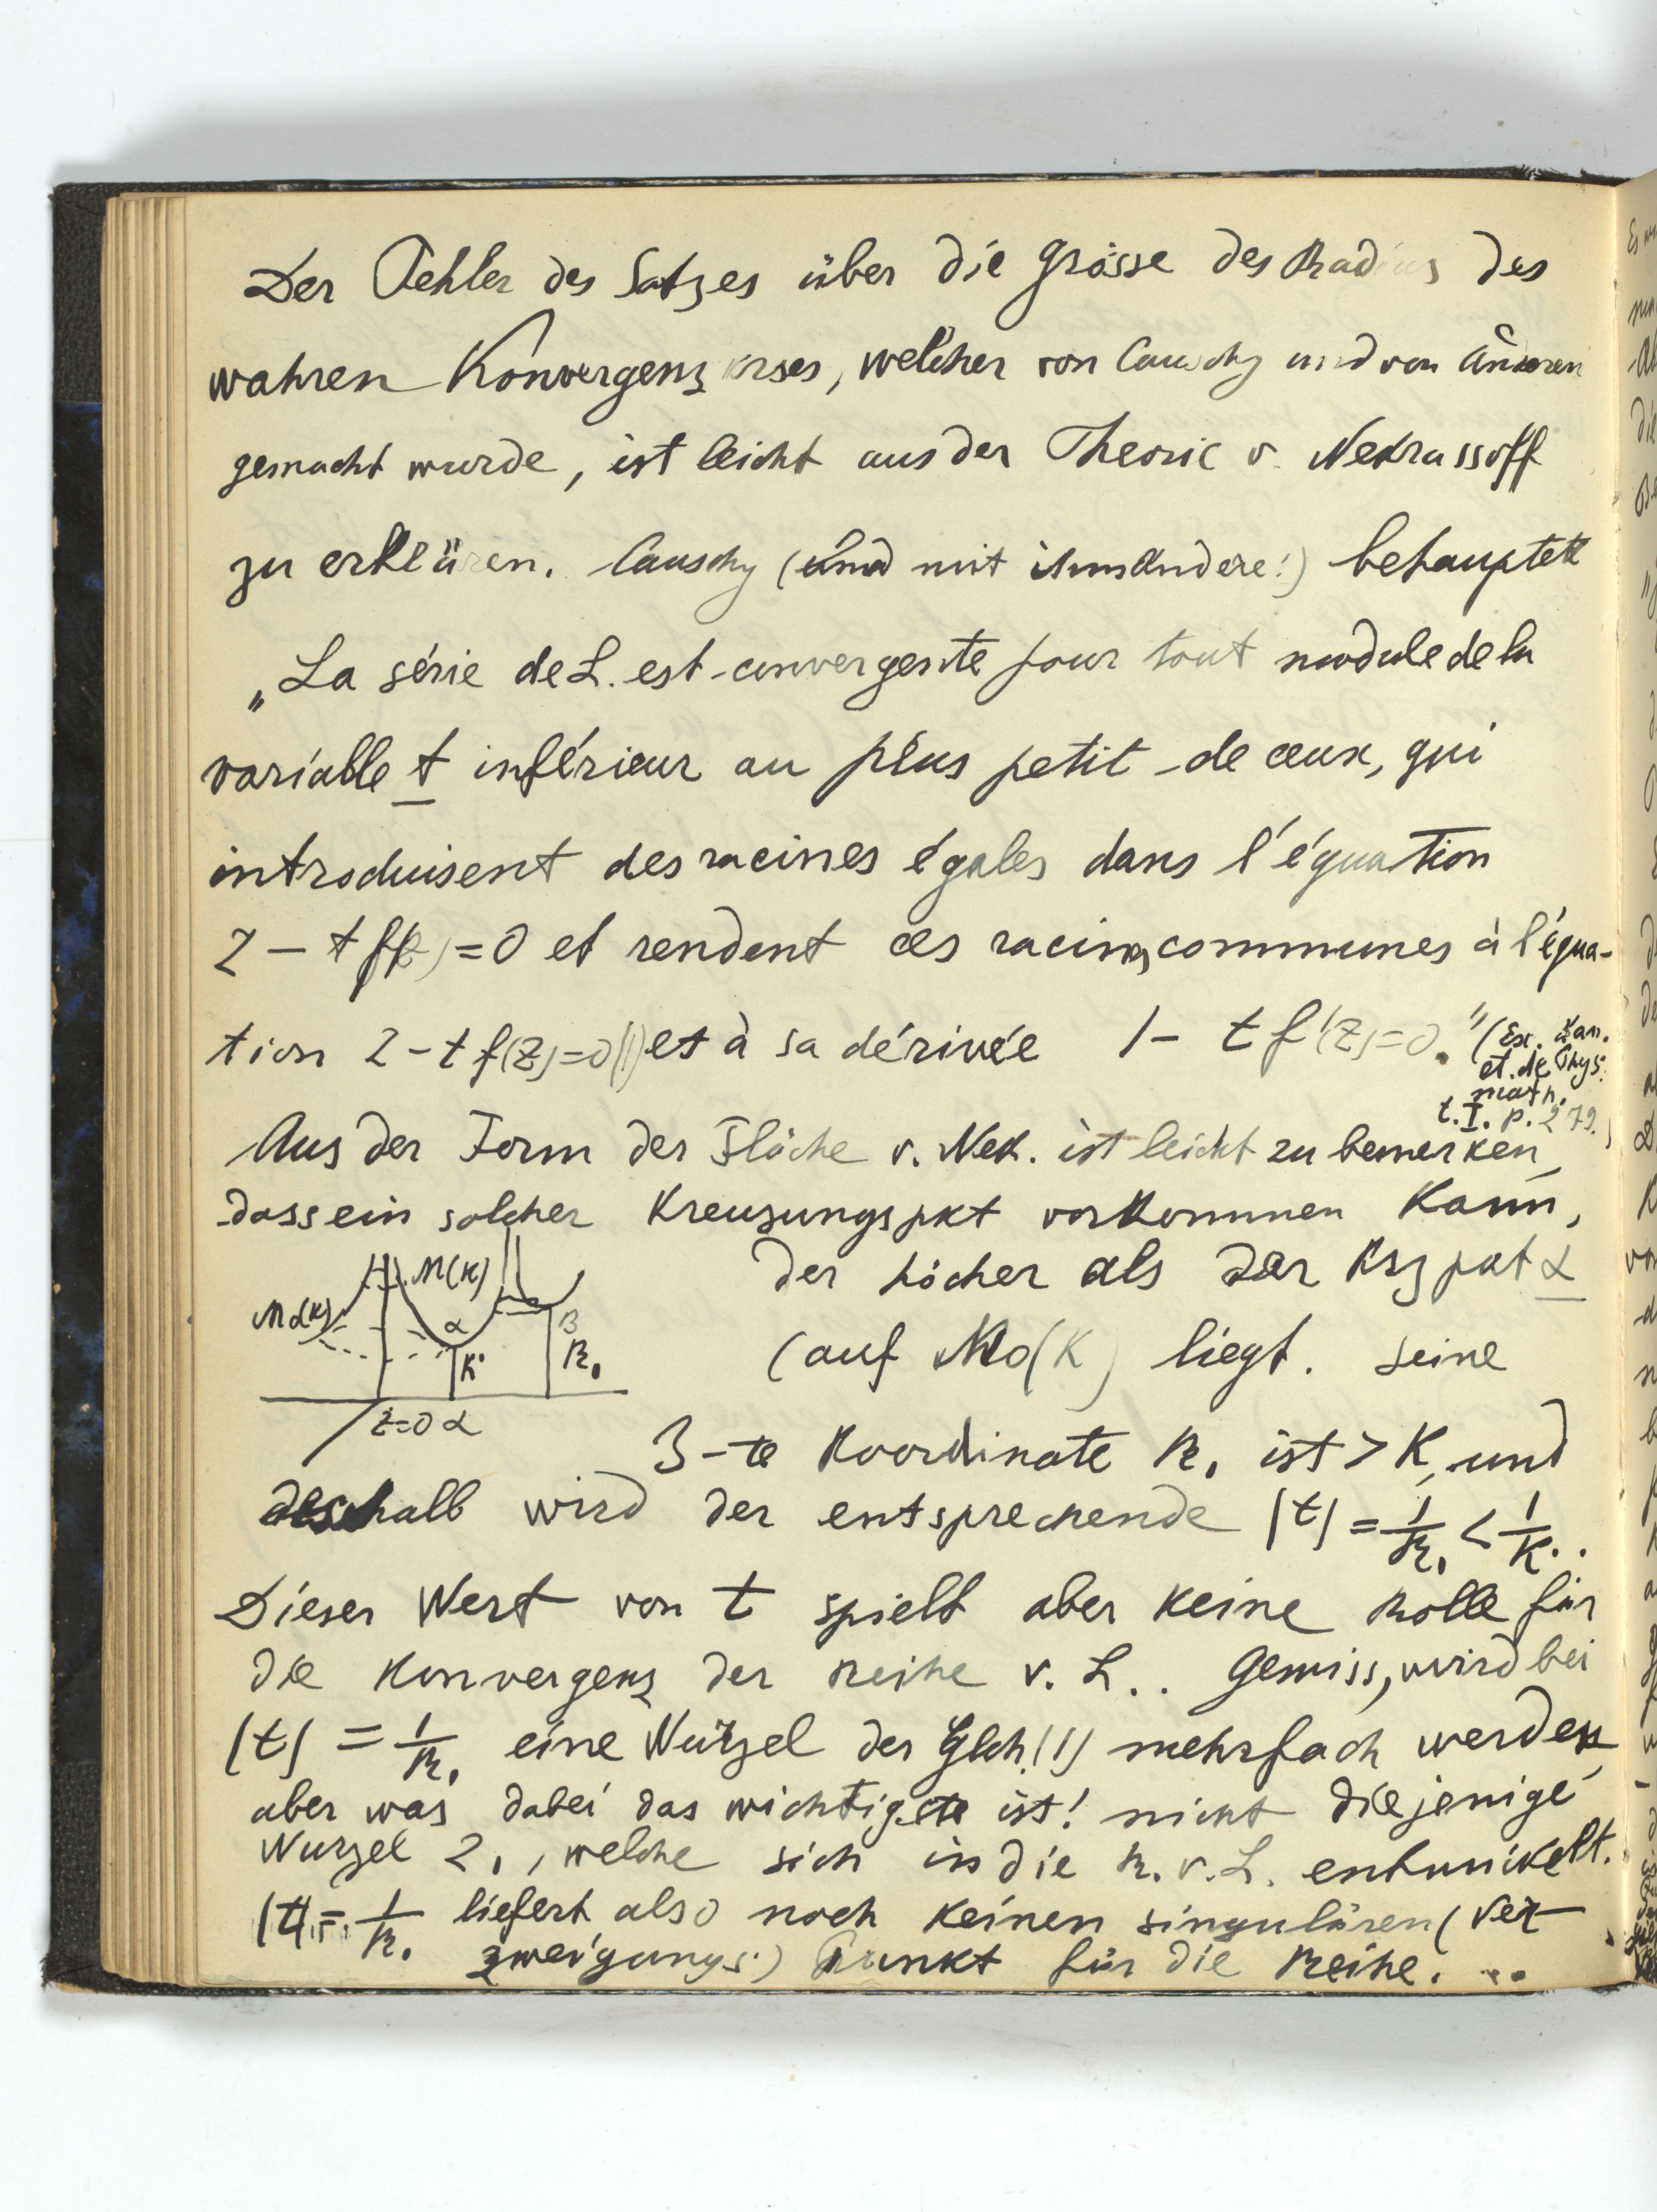 Der Fehler des Satzes über die Grösse des Radius des
wahren Konvergenzkrses, welcher von Cauchy und von Anderen
gemacht wurde, ist leicht aus der Theorie v. Nekrassoff
zu erklären. Cauchy (und mit ihm Andere!) behauptet
„La série de L. est convergente pour tout module de la
variable t inférieur au plus petit de ceux, qui
introduisent des racines égales dans l'équation
z – t f(z) = 0 et rendent ces racines communes à l'équa-
tion z – t f(z) = 0 (1) et à sa dérivée 1 – t f'(z) = 0." (Ex. d'an.
et. de Phys.
math.
t. I. p. 279.)
Aus der Form der Fläche v. Nek. ist leicht zu bemerken,
dass ein solcher Kreuzungspkt vorkommen kann,
der höcher als der Krzpkt α
(auf M₀(K) liegt. Seine
3-te Koordinate R₁ ist > K, und
deshalb wird der entsprechende |t| = 1/R₁ < 1/K..
Dieser Wert von t spielt aber keine Rolle für
die Konvergenz der Reihe v. L.. Gewiss, wird bei
|t| = 1/R₁ eine Wurzel der Glch. (1) mehrfach werden,
aber was dabei das wichtigste ist! nicht diejenige
Wurzel z₁, welche sich in die R. v. L. entwickelt.
|t| = 1/R₁ liefert also noch keinen singulären (Ver-
zweigungs.) Punkt für die Reihe. ..
M(K)
α
B
K
R₁
z=0 α